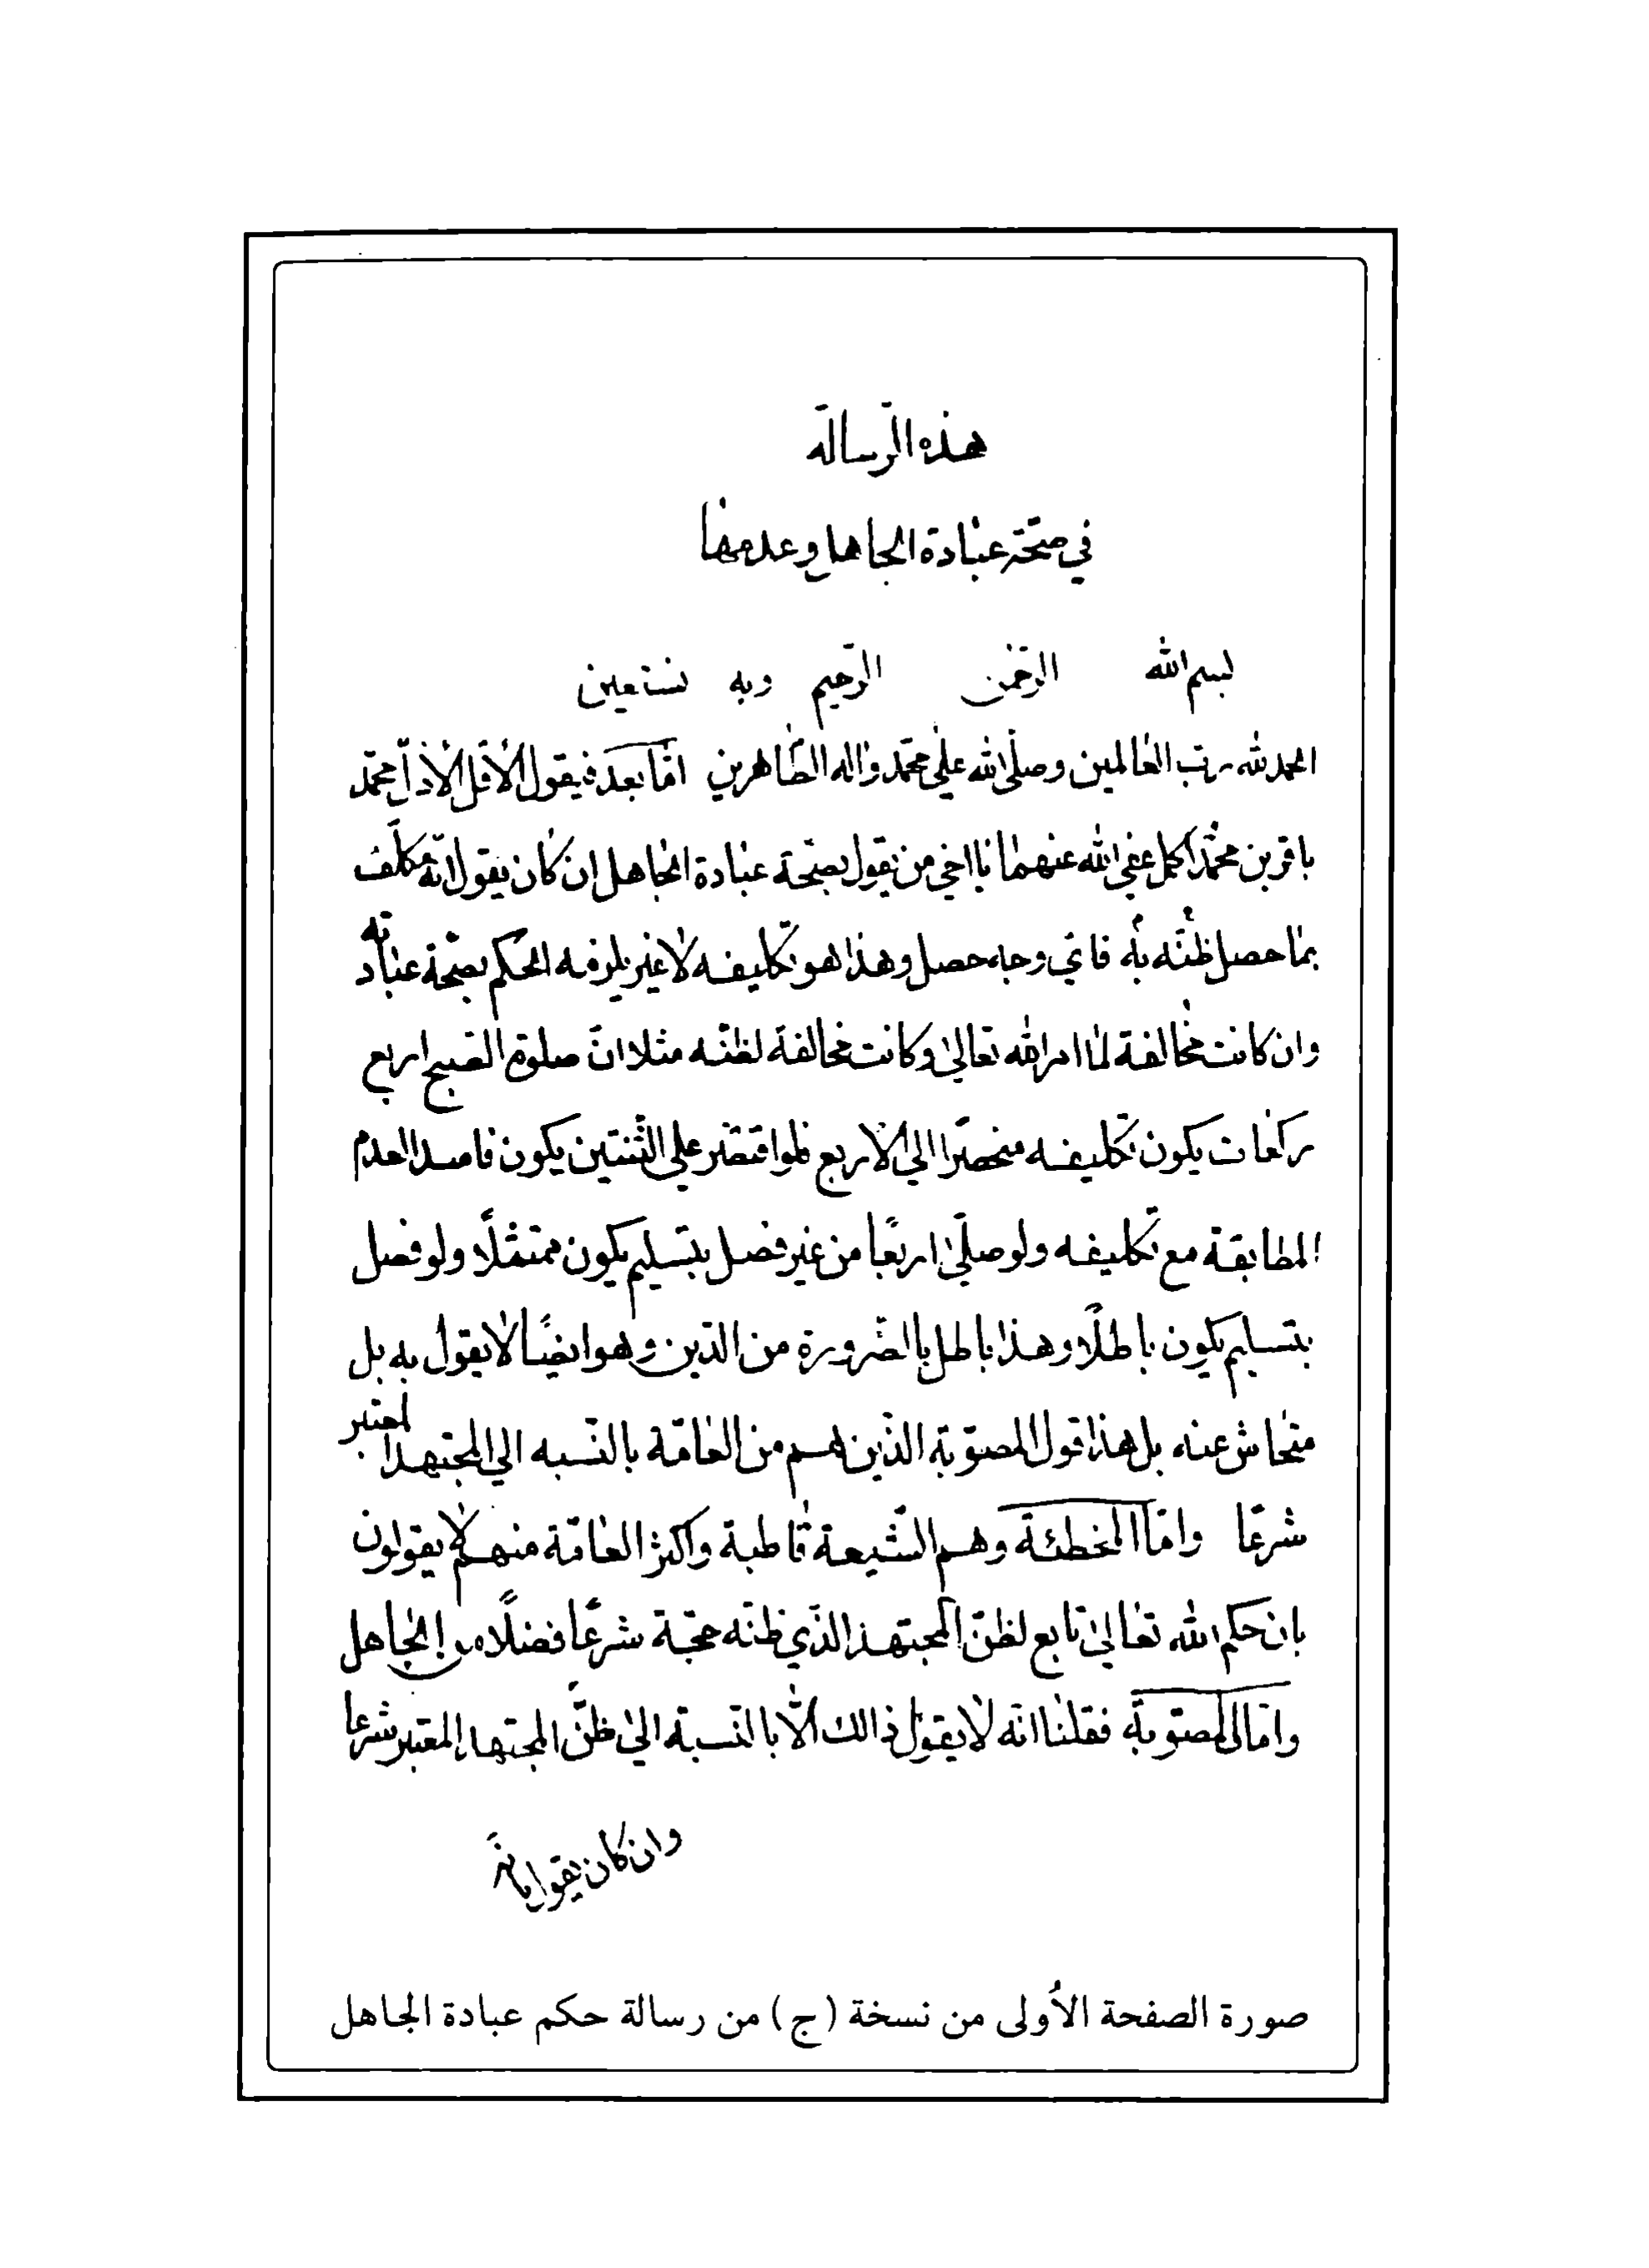 هذه الرسالة
في صحة عبادة الجاهل وعدمها
بسم الله الرحمن الرحيم وبه نستعين
الحمد لله رب العالمين وصلى الله على محمد واله الطاهرين امّا بعد فيقول الأقل الأذل محمد
باقر بن محمد اكمل عفى الله عنهما يا اخي من يقول بصحة عبادة الجاهل ان كان يقول انّه مكلف
بما حصل ظنّه به فاي وجه حصل وهذا هو تكليفه لا غير يلزمه الحكم بصحة عباداته
وان كانت مخالفة لما امر الله تعالى وكانت مخالفة لظنّه مثلا انّ صلوة الصبح اربع
ركعات يكون تكليفه منحصرا الى الاربع فلو اقتصر على الثنتين يكون فاسدا لعدم
المطابقة مع تكليفه ولو صلّى اربعًا من غير فصل بتسليم يكون ممتثلًا ولو فصل
بتسليم يكون باطلًا وهذا باطل بالضرورة من الدّين وهو ايضًا لا يقول به بل
متحاش عنه بل هذا قول المصوّبة الذّين هم من العامّة بالنّسبه الي المجتهد المعتبر
شرعًا وامّا المخطئة وهم الشّيعة قاطبة واكثر العامّة منهم لا يقولون
بان حكم الله تعالى تابع لظنّ المجتهد الذّي ظنّه حجّة شرعًا فضلًا من الجاهل
وامّا المصوّبة فقلنا انّه لا يقول ذالك الّا بالنّسبة الى ظنّ المجتهد المعتبر شرعا
وان كان يقول بانّه
صورة الصفحة الأولى من نسخة (ج) من رسالة حكم عبادة الجاهل